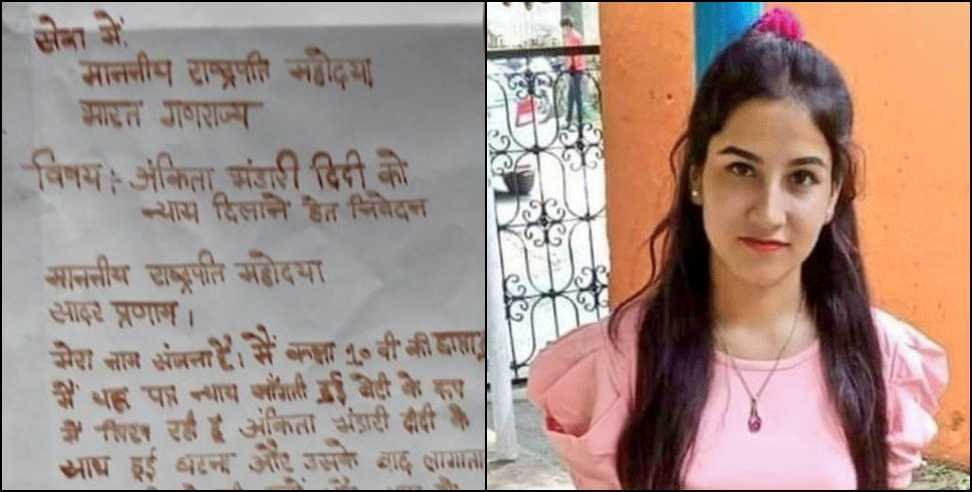 सेवा में,
माननीय राष्ट्रपति महोदया
भारत गणराज्य
विषय :- अंकिता भंडारी दिदी को
न्याय दिलाने हेतु निवेदन
माननीय राष्ट्रपति महोदया
सादर प्रणाम ।
मेरा नाम संजना है। मैं कक्षा 10 वी की छात्रा हूं
मैं यह पत्र न्याय माँगती हुई बेटी के रूप
में लिख रही हूं अंकिता भंडारी दीदी के
साथ हुई घटना और उसके बाद लागाता